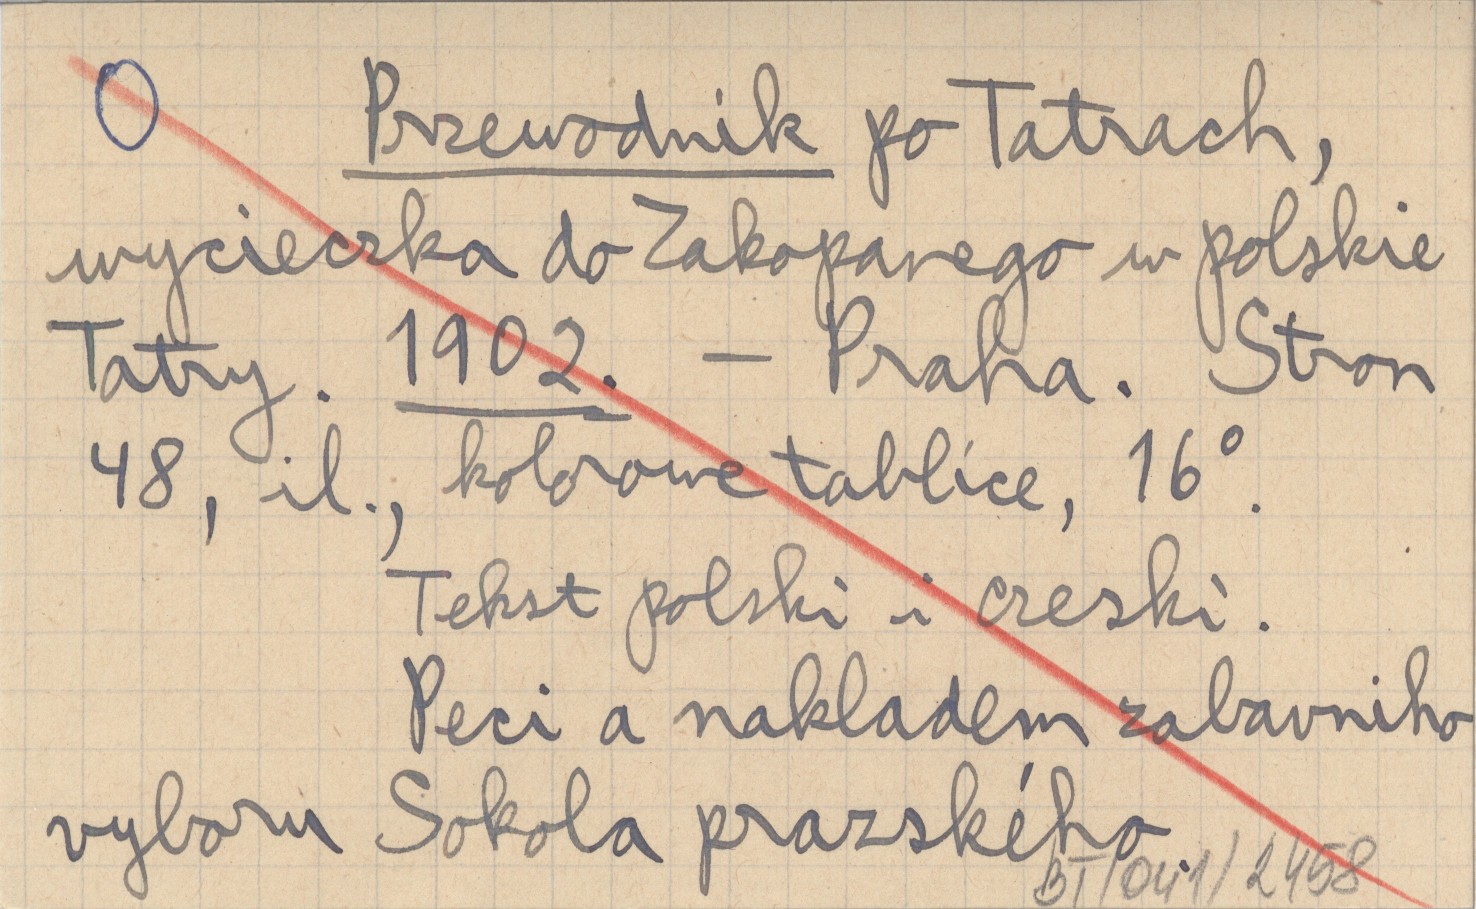 O Przewodnik po Tatrach,
wycieczka do Zakopanego w polskie
Tatry. 1902. — Praha. Stron
48, il., kolorowe tablice, 16°.
Tekst polski i czeski.
Peci a nakladem zabavniho
vyboru Sokola prazského.
BT/041/2458